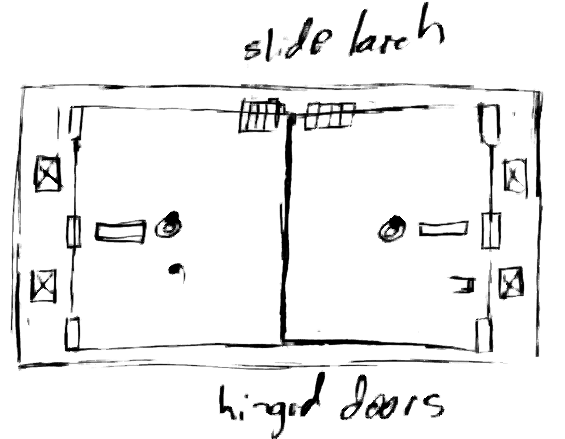 slide latch
hinged doors